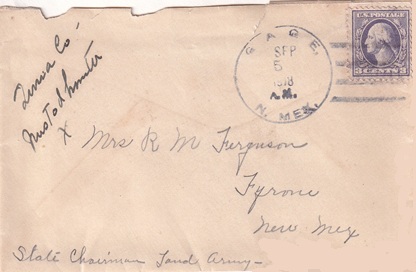 GAGE.
SEP
5
1918
A.M.
N. MEX.
U.S. POSTAGE
3 CENTS 3
Co
X
Mrs R M Ferguson
Tyrone
New Mex
State Chairman Land Army -